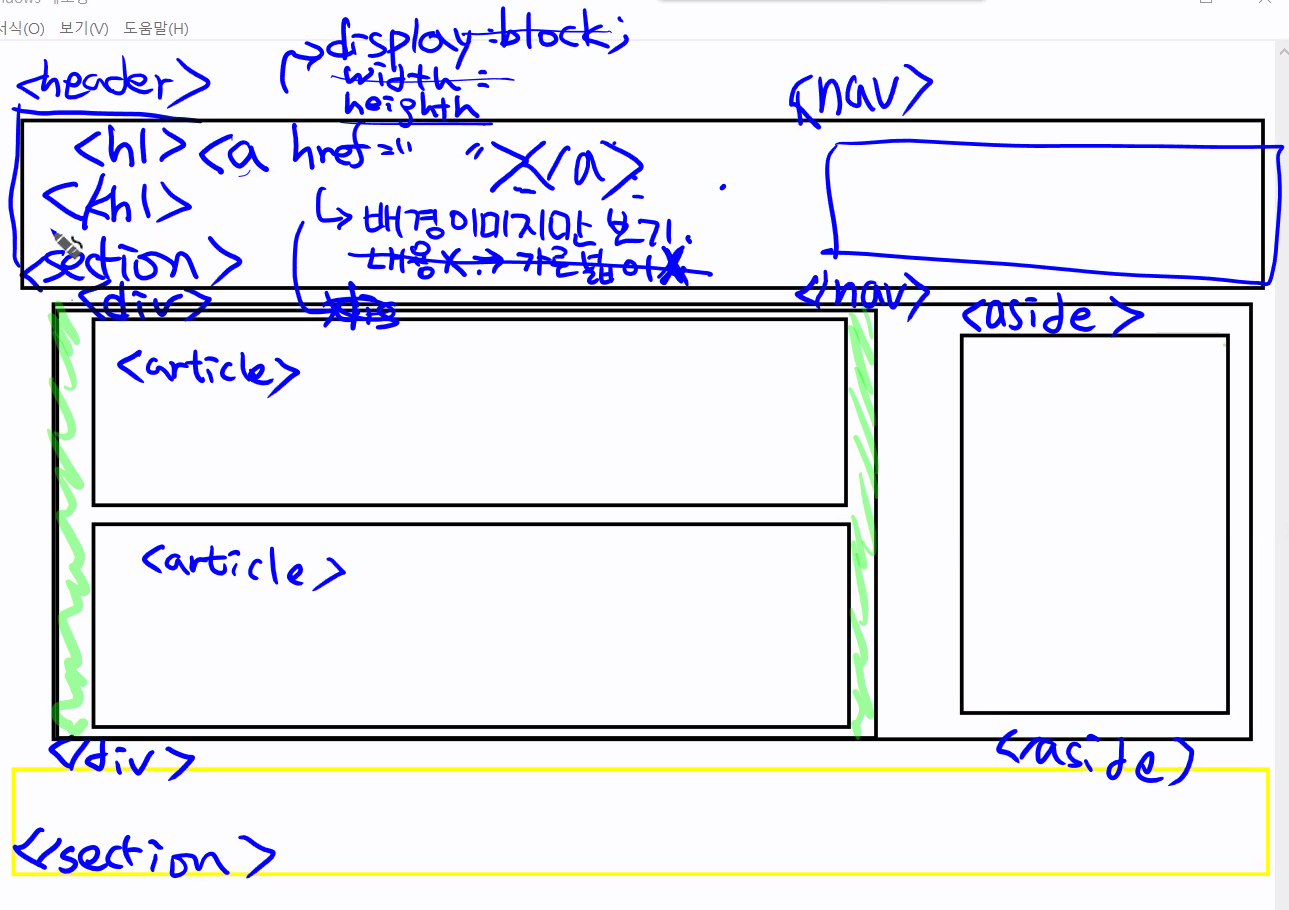 서식(O) 보기(V) 도움말(H)
display:block;
width :
heighth
<header>
<nav>
<h1> <a href="" ></a>
</h1>
배경이미지만 보기.
<section>
</nav>
<div>
<aside>
<article>
<article>
</div>
</aside>
</section>